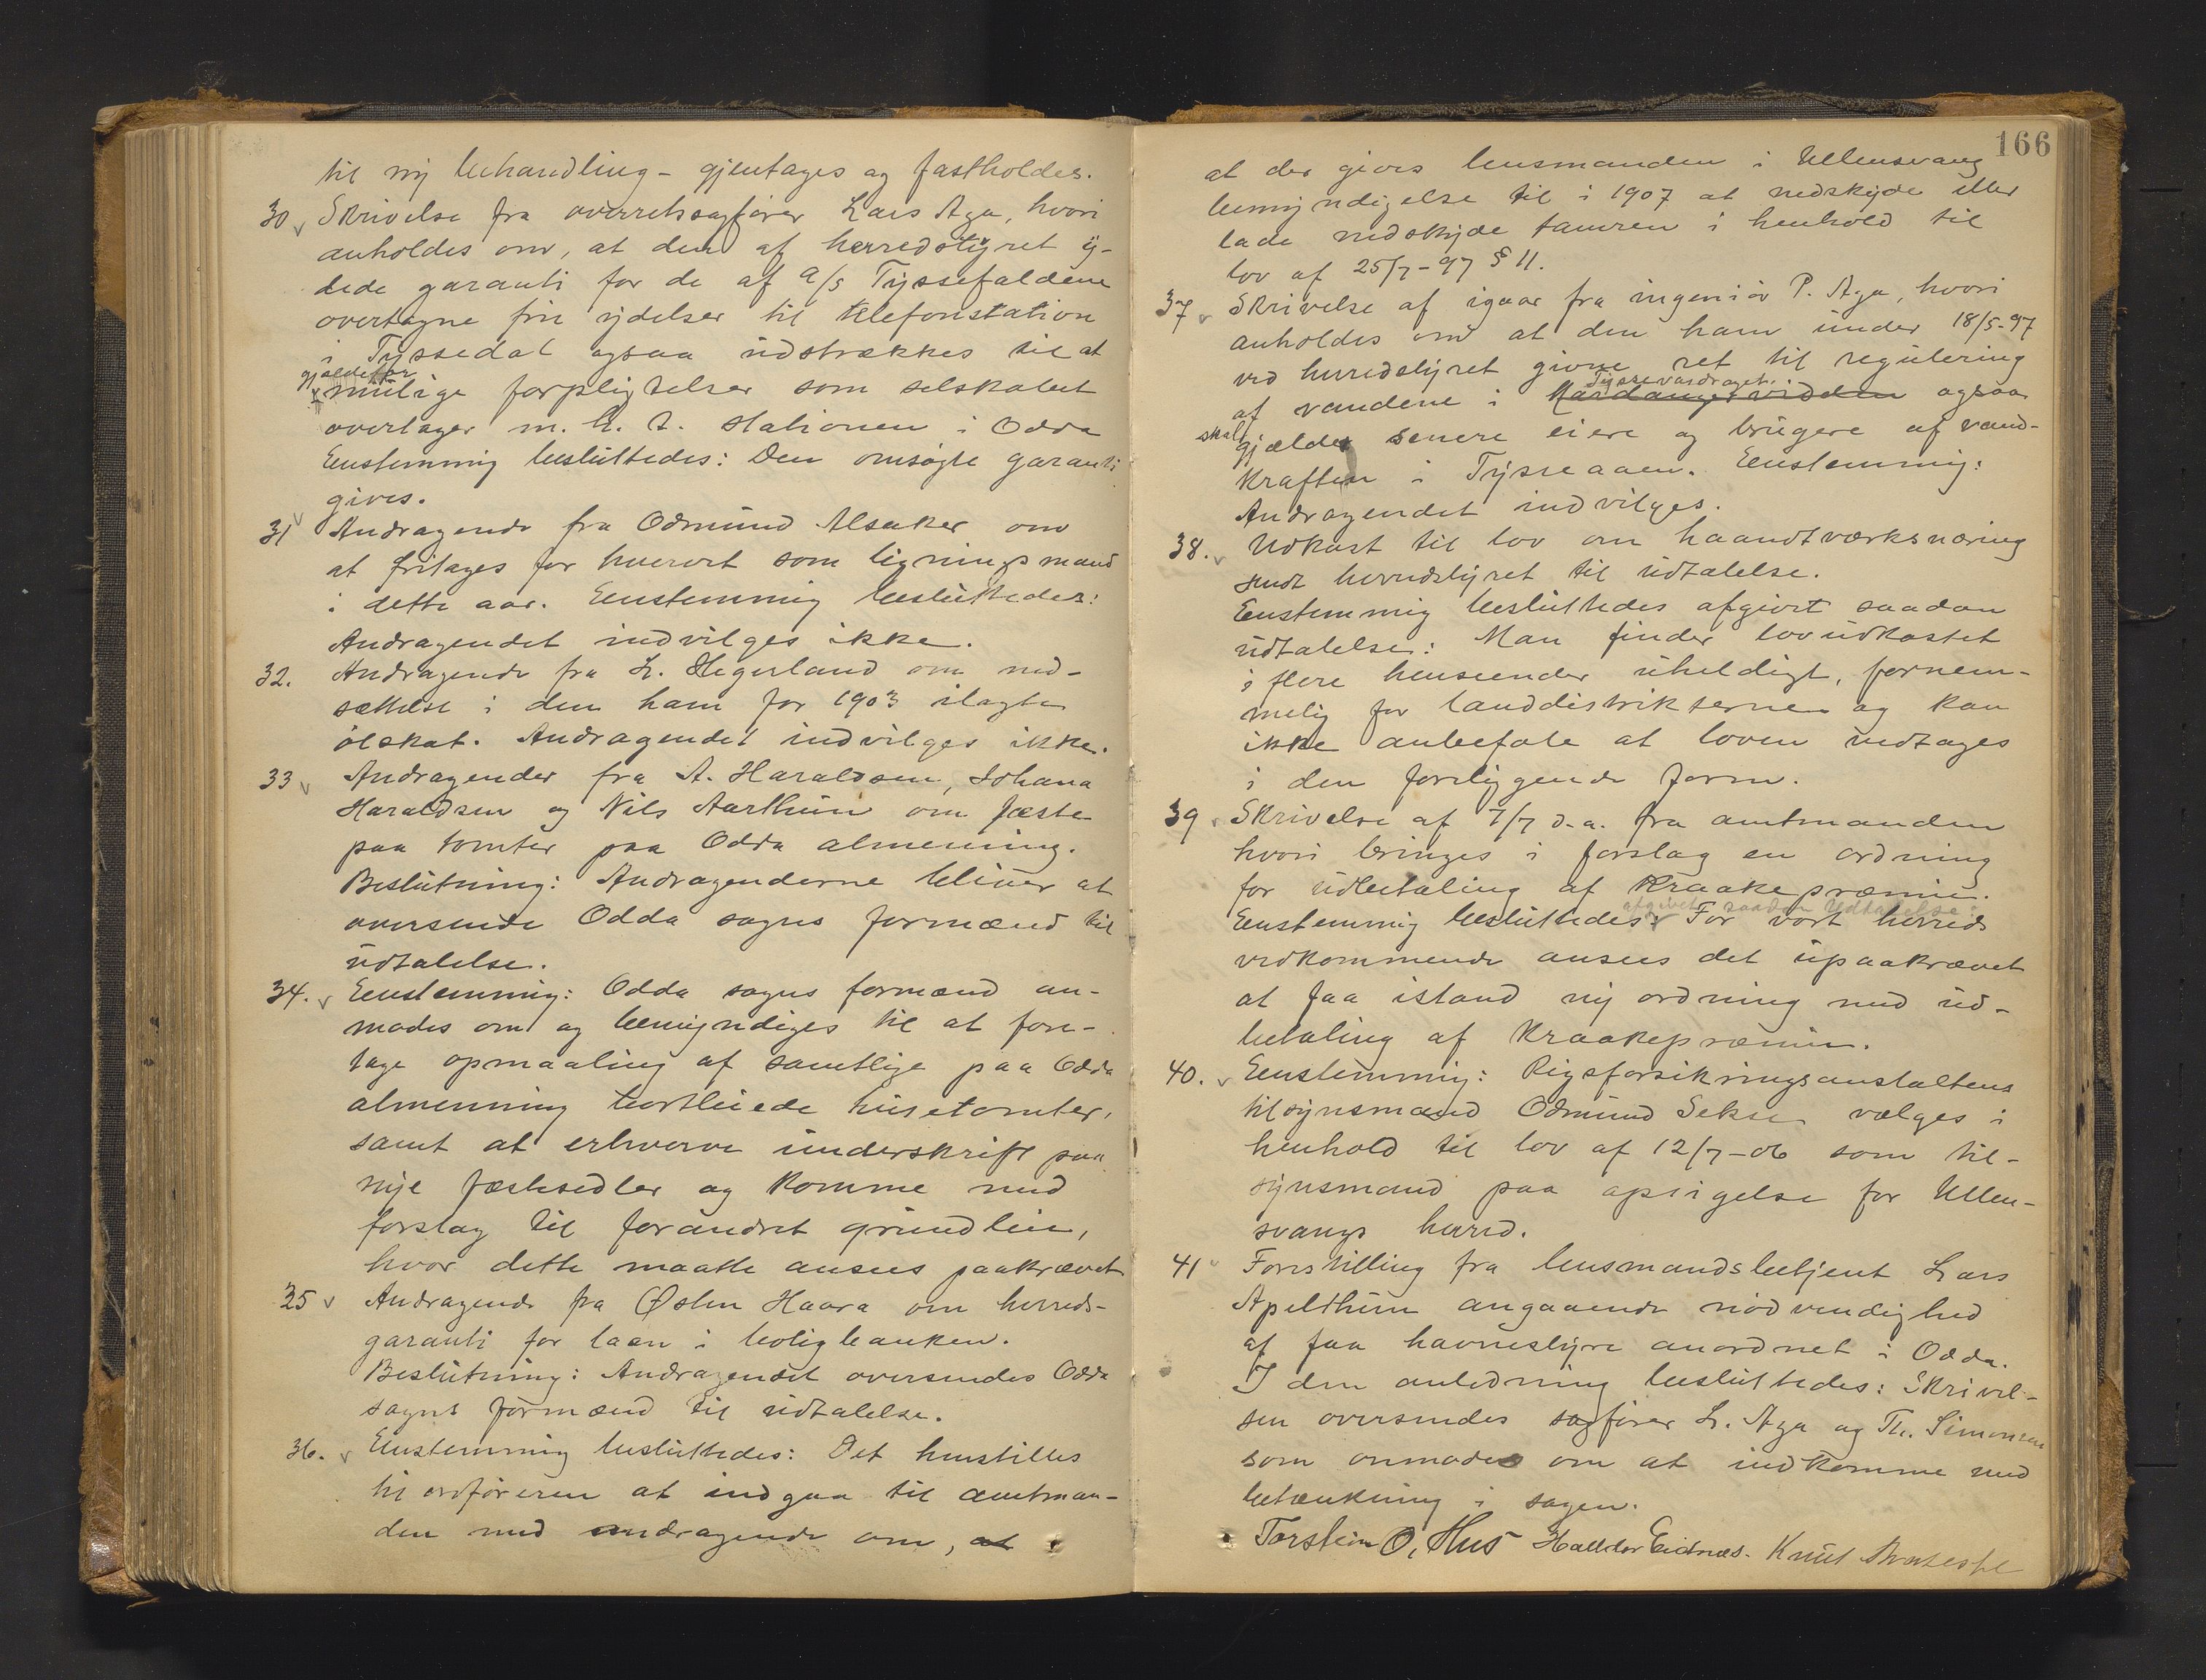 til ny behandling - gjentages og fastholdes.
30 v Skrivelse fra overretssagfører Lars Aga, hvori
anholdes om, at den af herredstyret y-
dede garanti for de af a/s Tyssefaldene
overtagne frie ydelser til telefonstation
i Tyssedal ogsaa udstrækkes til at
gjælde for
mulige forpligtelser som selskabet
overtager m. h. t. stationen i Odda
Eenstemmig besluttedes: Den omsøgte garanti
gives.
31 v Andragende fra Odmund Alsaker om
at fritages for hvervet som ligningsmand
i dette aar. Eenstemmig besluttedes:
Andragendet indvilges ikke.
32. Andragende fra L. Hegerland om ned-
sættelse i den ham for 1903 ilagte
ølskat. Andragendet indvilges ikke.
33 v Andragender fra A. Haraldsen, Johana
Haraldsen og Nils Aarthun om fæste
paa tomter paa Odda almenning.
Beslutning: Andragenderne bliver at
oversende Odda sogns formænd til
udtalelse.
34. v Eenstemmig: Odda sogns formænd an-
modes om og bemyndiges til at fore-
tage opmaaling af samtlige paa Odda
almenning bortleiede husetomter,
samt at erhverve underskrift paa
nye fæstesedler og komme med
forslag til forandret grundleie,
hvor dette maatte ansees paakrævet
35 v Andragende fra Østen Haara om herreds-
garanti for laan i boligbanken.
Beslutning: Andragendet oversendes Odda
sogns formænd til udtalelse.
36. v Eenstemmig besluttedes: Det henstilles
til ordføreren at indgaa til amtman-
den med andragende om, at
166
at der gives lensmanden i Ullensvang
bemyndigelse til i 1907 at nedskyde eller
lade nedskyde tamren i henhold til
lov af 25/7-97 § 11.
37 v Skrivelse af igaar fra ingeniør P. Aga, hvori
anholdes om at den ham under 18/5-97
ved herredstyret givne ret til regulering
Tyssevasdraget
af vandene i Hardangervidden ogsaa
skal gjælde senere eiere og brugere af vand-
kraften i Tysseaaen. Eenstemmig:
Andragendet indvilges.
38. v Udkast til lov om haandtværksnæring
sendt herredstyret til udtalelse.
Eenstemmig besluttedes afgivet saadan
udtalelse: Man finder lovudkastet
i flere henseender uheldigt, fornem-
melig for landdistrikterne og kan
ikke anbefale at loven vedtages
i den foreliggende form.
39 v Skrivelse af 7/7 d.a. fra amtmanden
hvori bringes i forslag en ordning
for udbetaling af kraakepræmie.
afgivet saadan Udtalelse:
Eenstemmig besluttedes: For vort herreds
vedkommende ansees det upaakrævet
at faa istand ny ordning med ud-
betaling af kraakepræmien.
40. v Eenstemmig: Rigsforsikringsanstaltens
tilsynsmænd Odmund Sekse vælges i
henhold til lov af 12/7-06 som til-
synsmand paa opsigelse for Ullen-
svangs herred.
41 v Forestilling fra lensmandsbetjent Lars
Apelthun angaaende nødvendighed
af faa havnestyre anordnet i Odda.
I den anledning besluttedes: Skrivel-
sen oversendes sagfører L. Aga og Th. Simonsen
som anmodes om at indkomme med
betænkning i sagen.
Torstein O. Hus Halldor Eidnæs. Knut